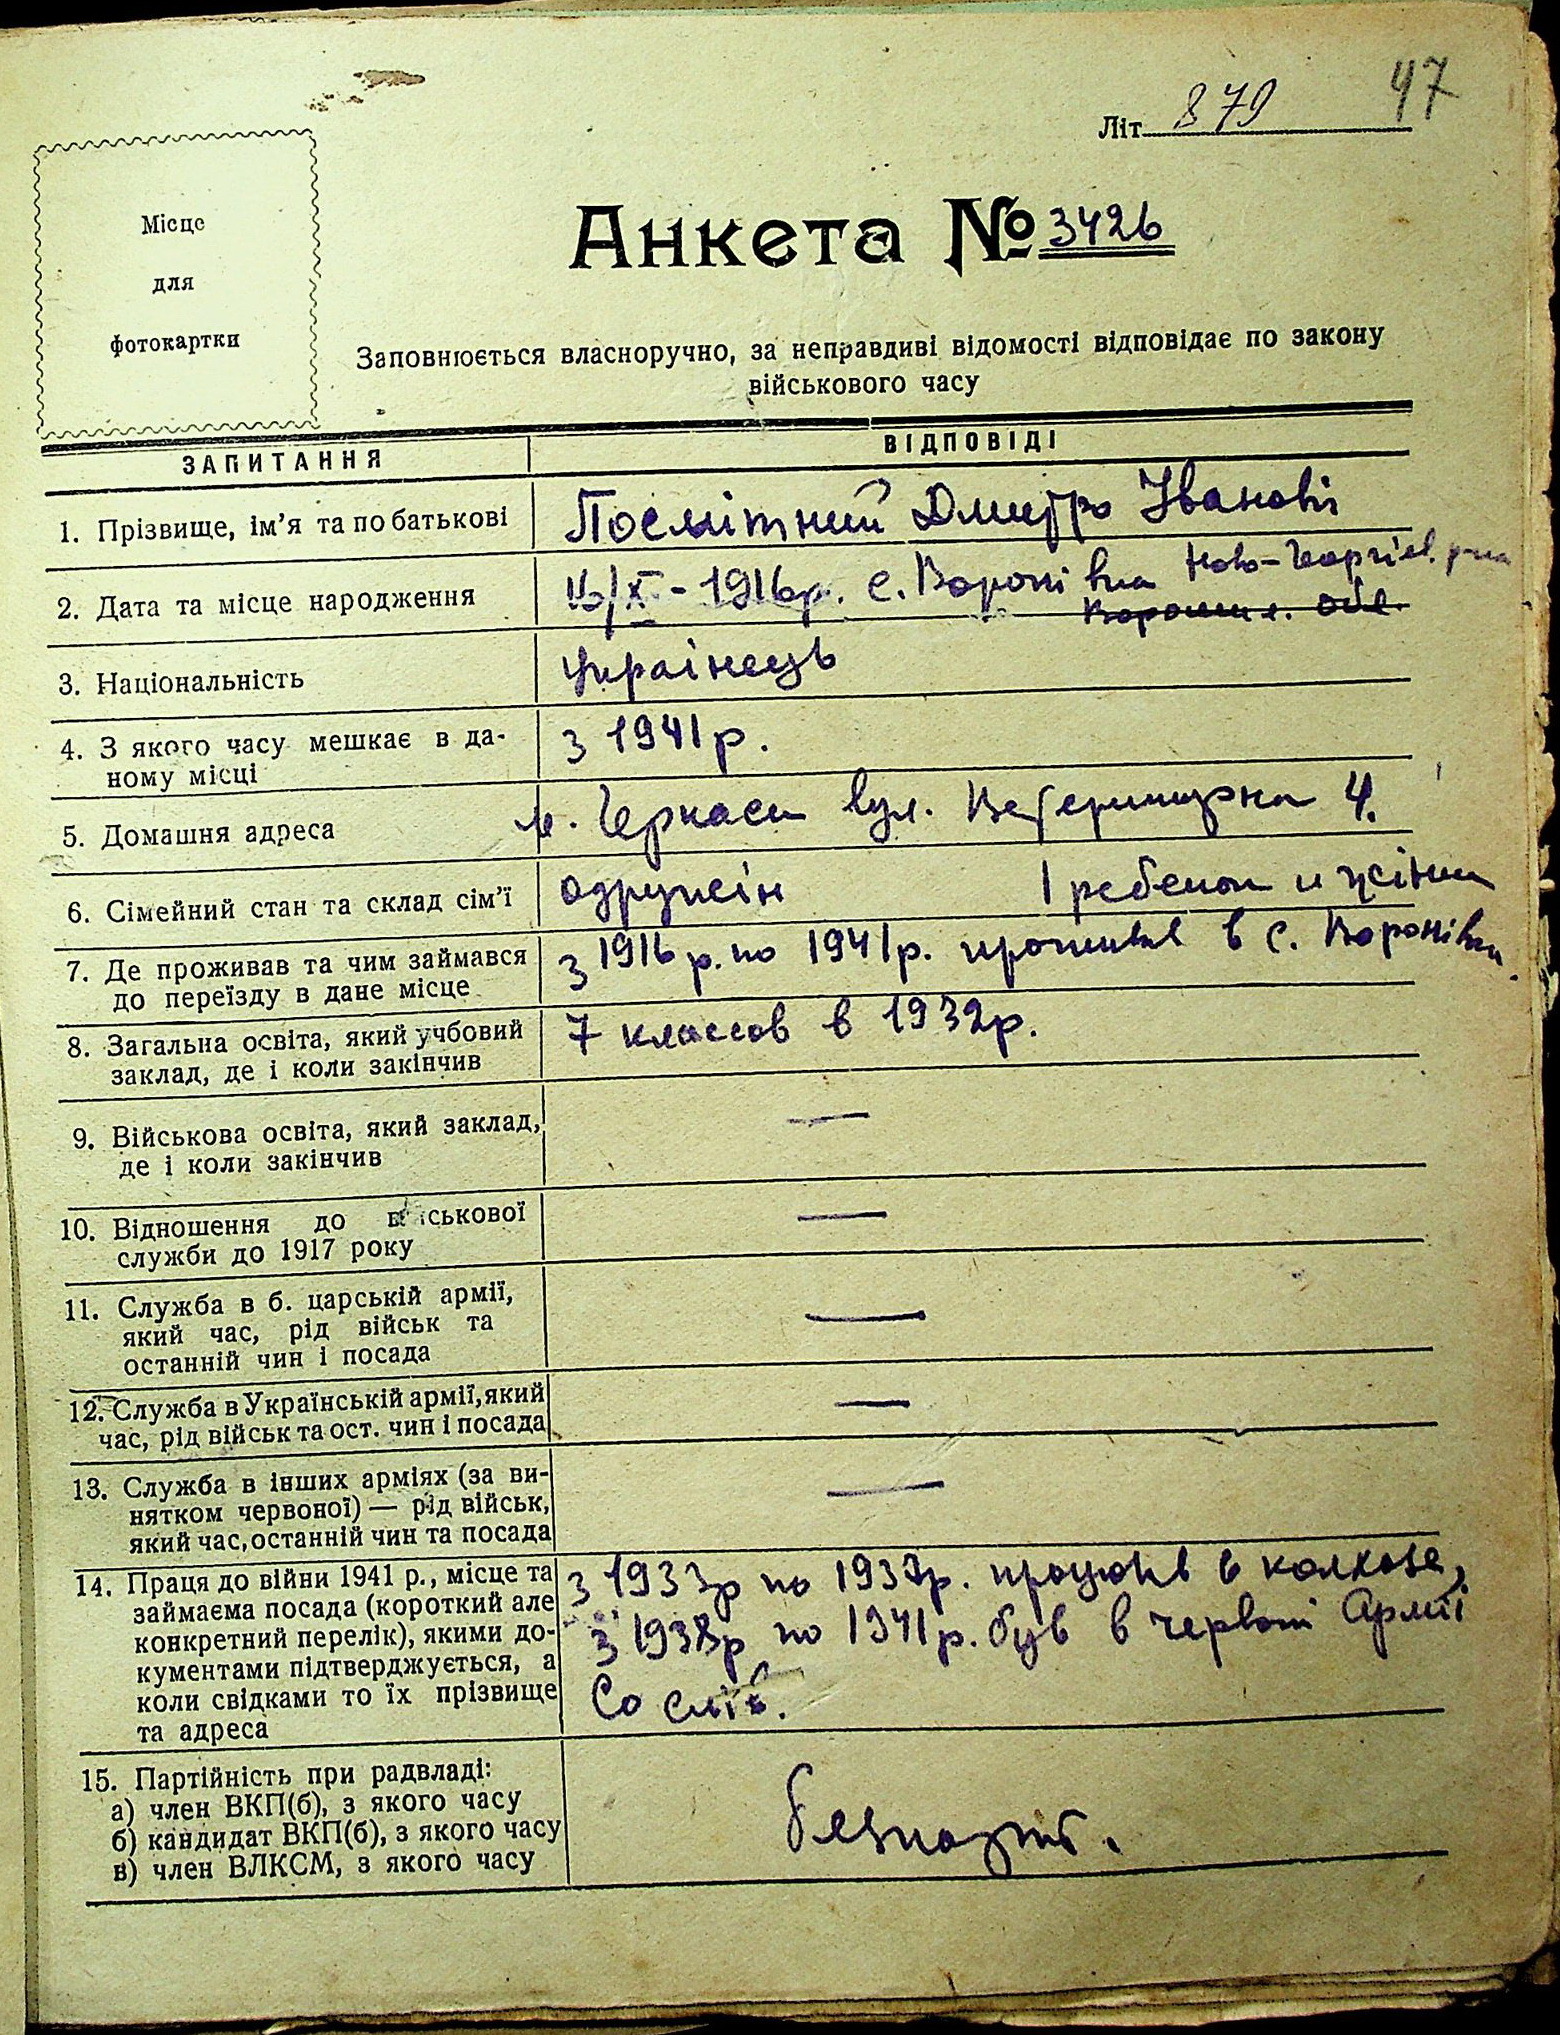 47
Літ. 879
Місце
для
фотокартки
Анкета № 3426
Заповнюється власноручно, за неправдиві відомості відповідає по закону
військового часу
ЗАПИТАННЯ ВІДПОВІДІ
1. Прізвище, ім'я та по батькові Посмітний Дмитро Іванові
2. Дата та місце народження 16/XI - 1916р. с. Воронівка Ново-Георгіев. р-на
обл.
3. Національність Українець
4. З якого часу мешкає в да-
ному місці з 1941 р.
5. Домашня адреса м. Черкаси вул. 4.
6. Сімейний стан та склад сім'ї одружін 1 ребенок и жінка
7. Де проживав та чим займався
до переїзду в дане місце з 1916 р. по 1941 р. проживав в с. Воронівка.
8. Загальна освіта, який учбовий
заклад, де і коли закінчив 7 классов в 1932р.
9. Військова освіта, який заклад,
де і коли закінчив —
10. Відношення до військової
служби до 1917 року —
11. Служба в б. царській армії,
який час, рід військ та
останній чин і посада —
12. Служба в Українській армії, який
час, рід військ та ост. чин і посада —
13. Служба в інших арміях (за ви-
нятком червоної) — рід військ,
який час, останній чин та посада —
14. Праця до війни 1941 р., місце та
займаєма посада (короткий але
конкретний перелік), якими до-
кументами підтверджується, а
коли свідками то їх прізвище
та адреса
з 1933р по 1937р. працював в колхозе,
з 1938р по 1941р. був в червоні Армії
Со слів.
15. Партійність при радвладі:
а) член ВКП(б), з якого часу
б) кандидат ВКП(б), з якого часу
в) член ВЛКСМ, з якого часу
безпарт.